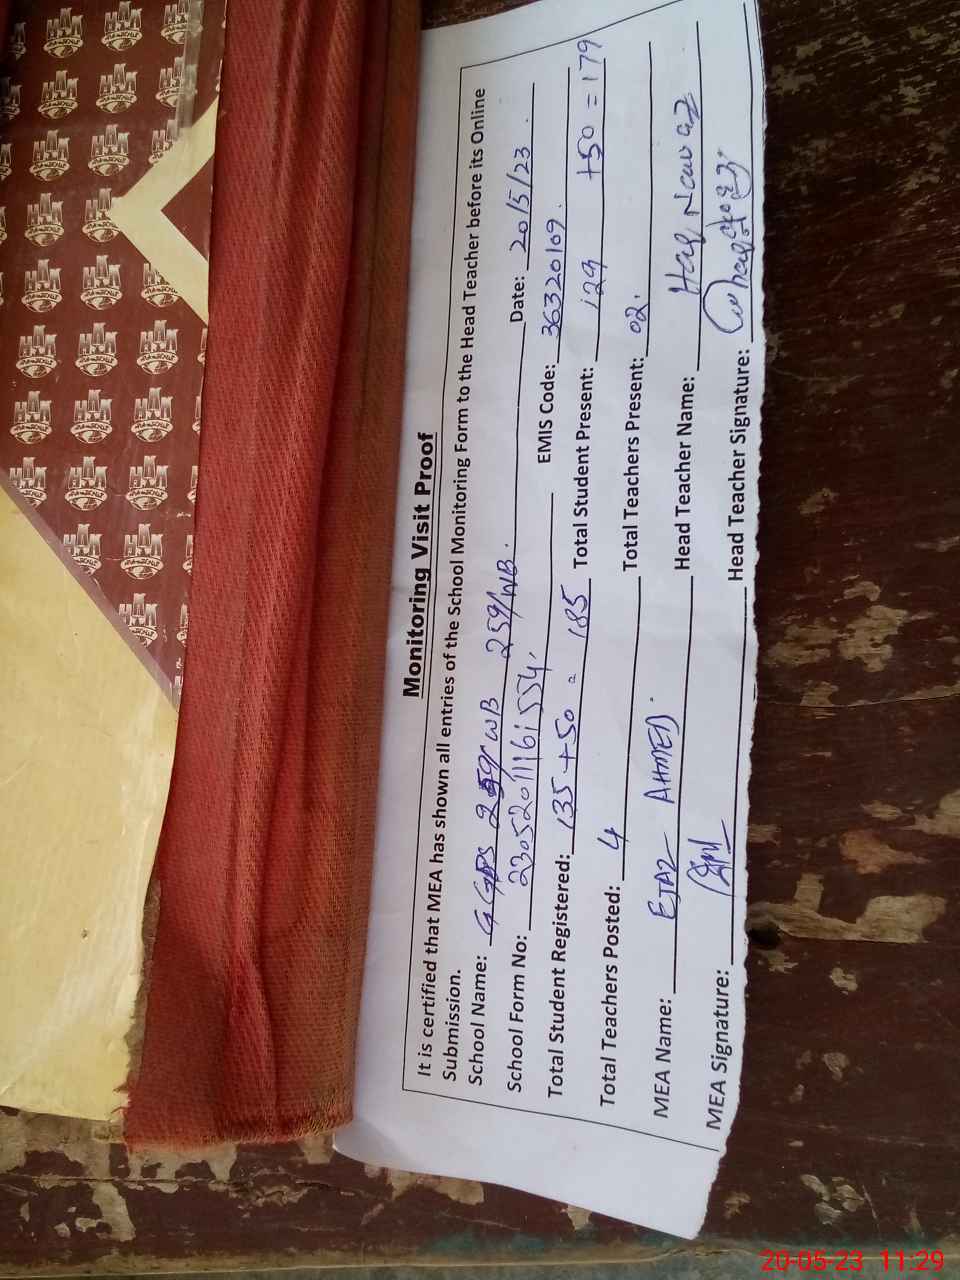 Monitoring Visit Proof
It is certified that MEA has shown all entries of the School Monitoring Form to the Head Teacher before its Online
Submission.
School Name: GGPS 259/WB 259/WB. Date: 20/5/23
School Form No: 23052011161554. EMIS Code: 36320109.
Total Student Registered: 135 + 50 = 185 Total Student Present: 129 +50 = 179
Total Teachers Posted: 4 Total Teachers Present: 02.
MEA Name: EJAZ AHMED. Head Teacher Name: Nawaz
MEA Signature: Head Teacher Signature:
20-05-23 11:29